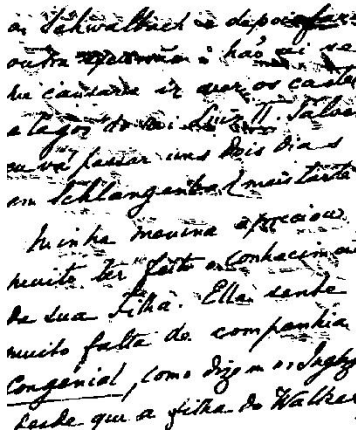 em Schwalbach e depois fazer
outra não sei se
me cansaria ir ver os castel
e lagos do rei Luiz II. Talvez
eu vá passar uns dois dias
em Schlangenbad mais tarde
Minha menina apreciou
muito ter feito o conhecim
da sua filha. Ella sente
muito falta de companhia
congenial, como dizem os Inglez
desde que a filha do Walker